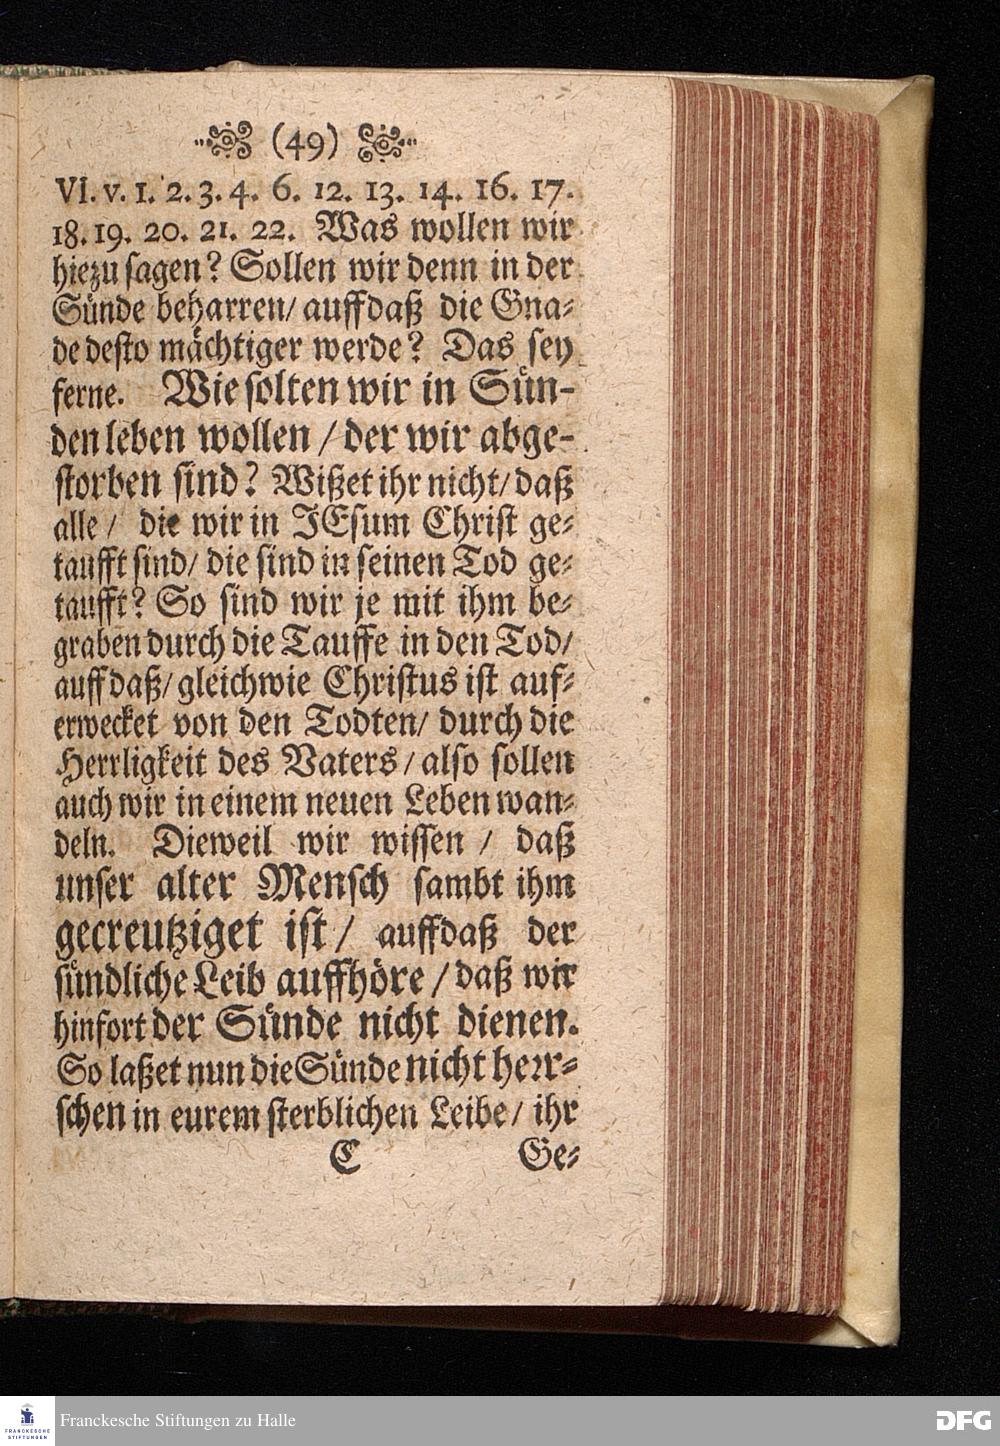 (49)
VI. v. 1. 2. 3. 4. 6. 12. 13. 14. 16. 17.
18. 19. 20. 21. 22. Was wollen wir
hiezu sagen? Sollen wir denn in der
Sünde beharren/ auffdaß die Gna-
de desto mächtiger werde? Das sey
ferne. Wie solten wir in Sün-
den leben wollen / der wir abge-
storben sind? Wißet ihr nicht/ daß
alle / die wir in JEsum Christ ge-
taufft sind/ die sind in seinen Tod ge-
taufft? So sind wir je mit ihm be-
graben durch die Tauffe in den Tod/
auff daß/ gleichwie Christus ist auf-
erwecket von den Todten/ durch die
Herrligkeit des Vaters / also sollen
auch wir in einem neuen Leben wan-
deln. Dieweil wir wissen / daß
unser alter Mensch sambt ihm
gecreutziget ist / auffdaß der
sündliche Leib auffhöre / daß wir
hinfort der Sünde nicht dienen.
So laßet nun die Sünde nicht herr-
schen in eurem sterblichen Leibe / ihr
C Ge-
FRANCKESCHE STIFTUNGEN
Franckesche Stiftungen zu Halle
DFG